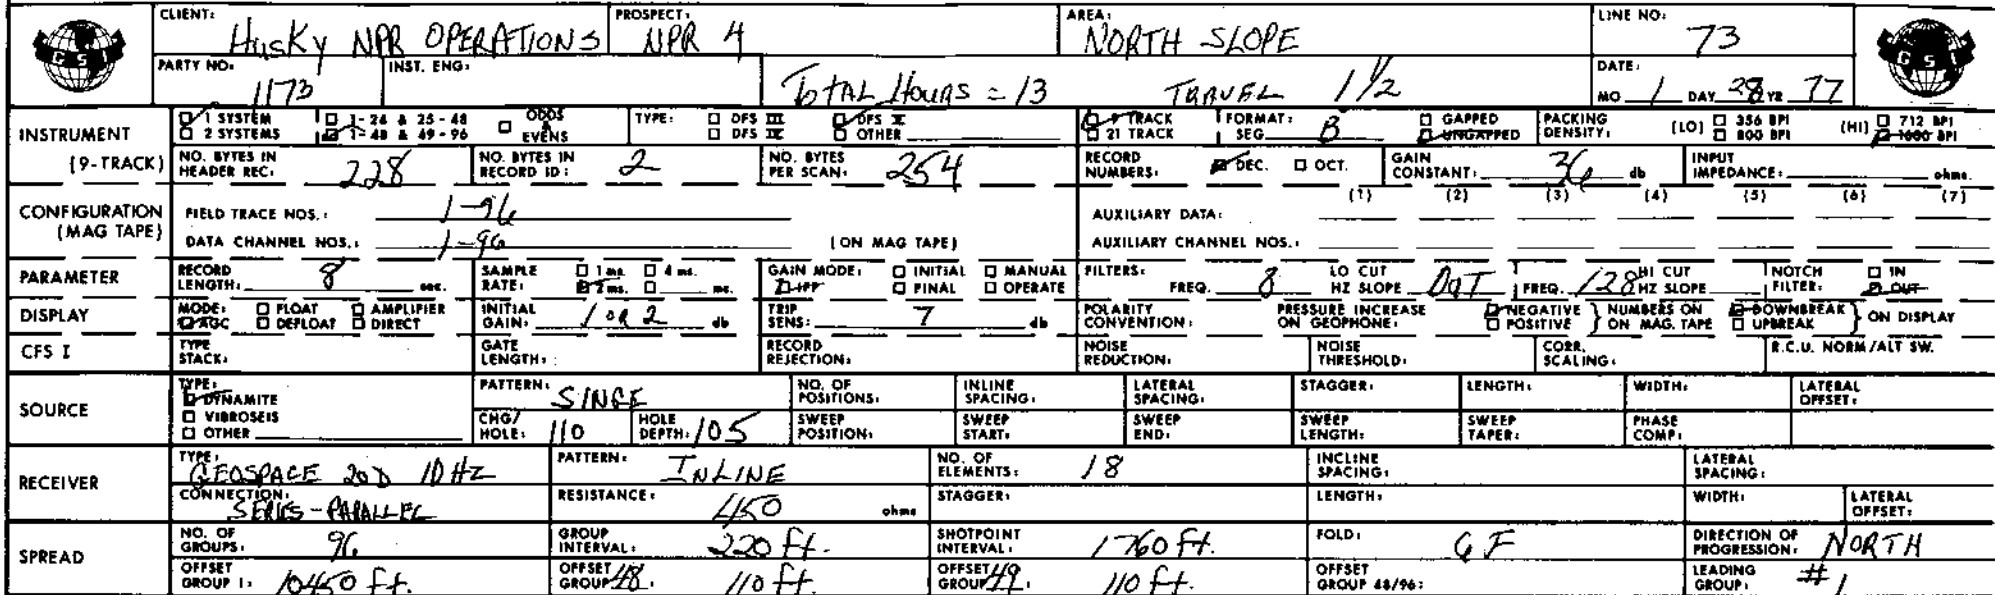 CLIENT: Husky NPR OPERATIONS PROSPECT: NPR 4 AREA: NORTH SLOPE LINE NO: 73
GSI GSI
PARTY NO: 1173 INST. ENG: Total Hours = 13 TRAVEL 1 1/2 DATE: MO 1 DAY 28 YR 77
INSTRUMENT (9-TRACK)
1 SYSTEM 1-24 & 25-48 ODDS & EVENS TYPE: DFS III DFS V 9 TRACK FORMAT: SEG B GAPPED PACKING DENSITY: (LO) 356 BPI (HI) 712 BPI
2 SYSTEMS 1-48 & 49-96 DFS IV OTHER 21 TRACK UNGAPPED 800 BPI 1600 BPI
NO. BYTES IN HEADER REC: 228 NO. BYTES IN RECORD ID: 2 NO. BYTES PER SCAN: 254 RECORD NUMBERS: DEC. OCT. GAIN CONSTANT: 36 db INPUT IMPEDANCE: ohms.
CONFIGURATION (MAG TAPE)
(1) (2) (3) (4) (5) (6) (7)
FIELD TRACE NOS.: 1-96 AUXILIARY DATA:
DATA CHANNEL NOS.: 1-96 (ON MAG TAPE) AUXILIARY CHANNEL NOS.:
PARAMETER RECORD LENGTH: 8 sec. SAMPLE RATE: 1 ms. 4 ms. 2 ms. ms. GAIN MODE: INITIAL MANUAL IFP FINAL OPERATE FILTERS: FREQ. 8 LO CUT HZ SLOPE OUT FREQ. 128 HI CUT HZ SLOPE NOTCH FILTER: IN OUT
DISPLAY MODE: FLOAT AMPLIFIER AGC DEFLOAT DIRECT INITIAL GAIN: 1 OR 2 db TRIP SENS: 7 db POLARITY CONVENTION: PRESSURE INCREASE ON GEOPHONE: NEGATIVE POSITIVE } NUMBERS ON ON MAG. TAPE DOWNBREAK UPBREAK } ON DISPLAY
CFS I TYPE STACK: GATE LENGTH: RECORD REJECTION: NOISE REDUCTION: NOISE THRESHOLD: CORR. SCALING: R.C.U. NORM/ALT SW.
SOURCE
TYPE: DYNAMITE VIBROSEIS OTHER
PATTERN: SINGE NO. OF POSITIONS: INLINE SPACING: LATERAL SPACING: STAGGER: LENGTH: WIDTH: LATERAL OFFSET:
CHG/HOLE: 110 HOLE DEPTH: 105 SWEEP POSITION: SWEEP START: SWEEP END: SWEEP LENGTH: SWEEP TAPER: PHASE COMP:
RECEIVER
TYPE: GEOSPACE 20D 10 HZ PATTERN: INLINE NO. OF ELEMENTS: 18 INCLINE SPACING: LATERAL SPACING:
CONNECTION: SERIES-PARALLEL RESISTANCE: 450 ohms STAGGER: LENGTH: WIDTH: LATERAL OFFSET:
SPREAD
NO. OF GROUPS: 96 GROUP INTERVAL: 220 Ft. SHOTPOINT INTERVAL: 1760 Ft. FOLD: 6 F DIRECTION OF PROGRESSION: NORTH
OFFSET GROUP 1: 10450 Ft. OFFSET GROUP 48: 110 Ft. OFFSET GROUP 49: 110 Ft. OFFSET GROUP 48/96: LEADING GROUP: #1